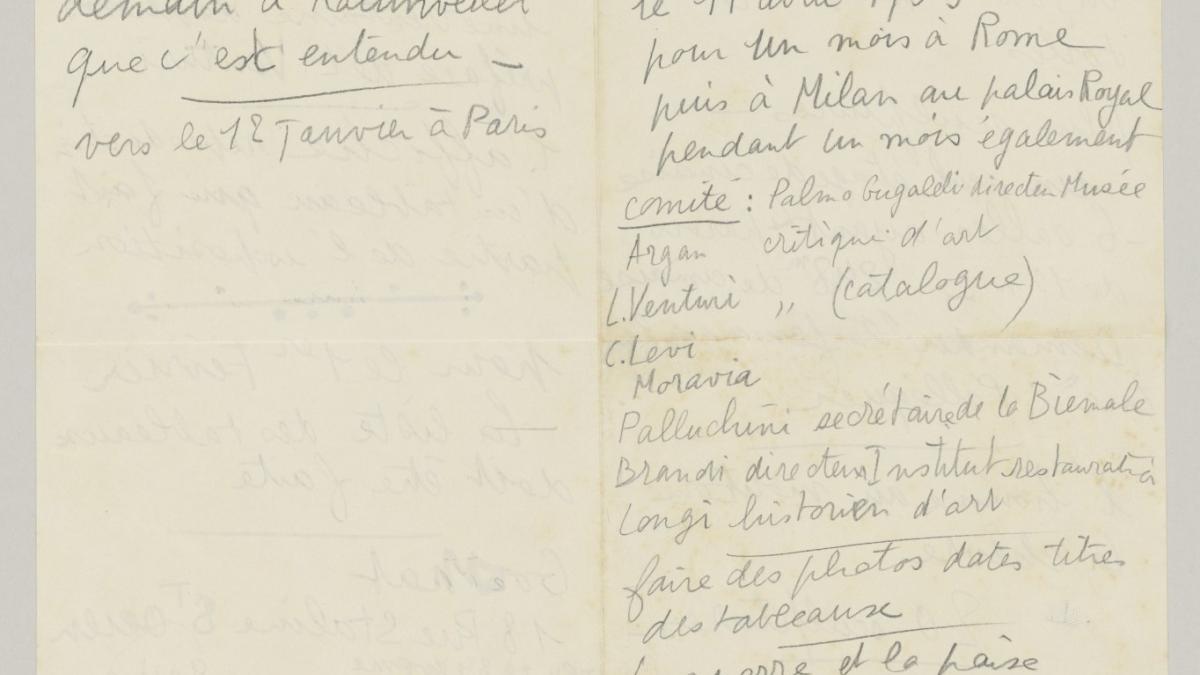 demain à Kahnweiler
que c'est entendu
vers le 12 Janvier à Paris
le 11 avril
pour un mois à Rome
puis à Milan au palais Royal
pendant un mois également
comité : Palmo Bugaldi directeu Musée
Argan critique d'art
L. Venturi ,, (catalogue)
C. Levi
Moravia
Palluchini secrétaire de la Biennale
Brandi directeur Institut restauratio
Longi historien d'art
faire des photos dates titres
des tableaux
et la paise